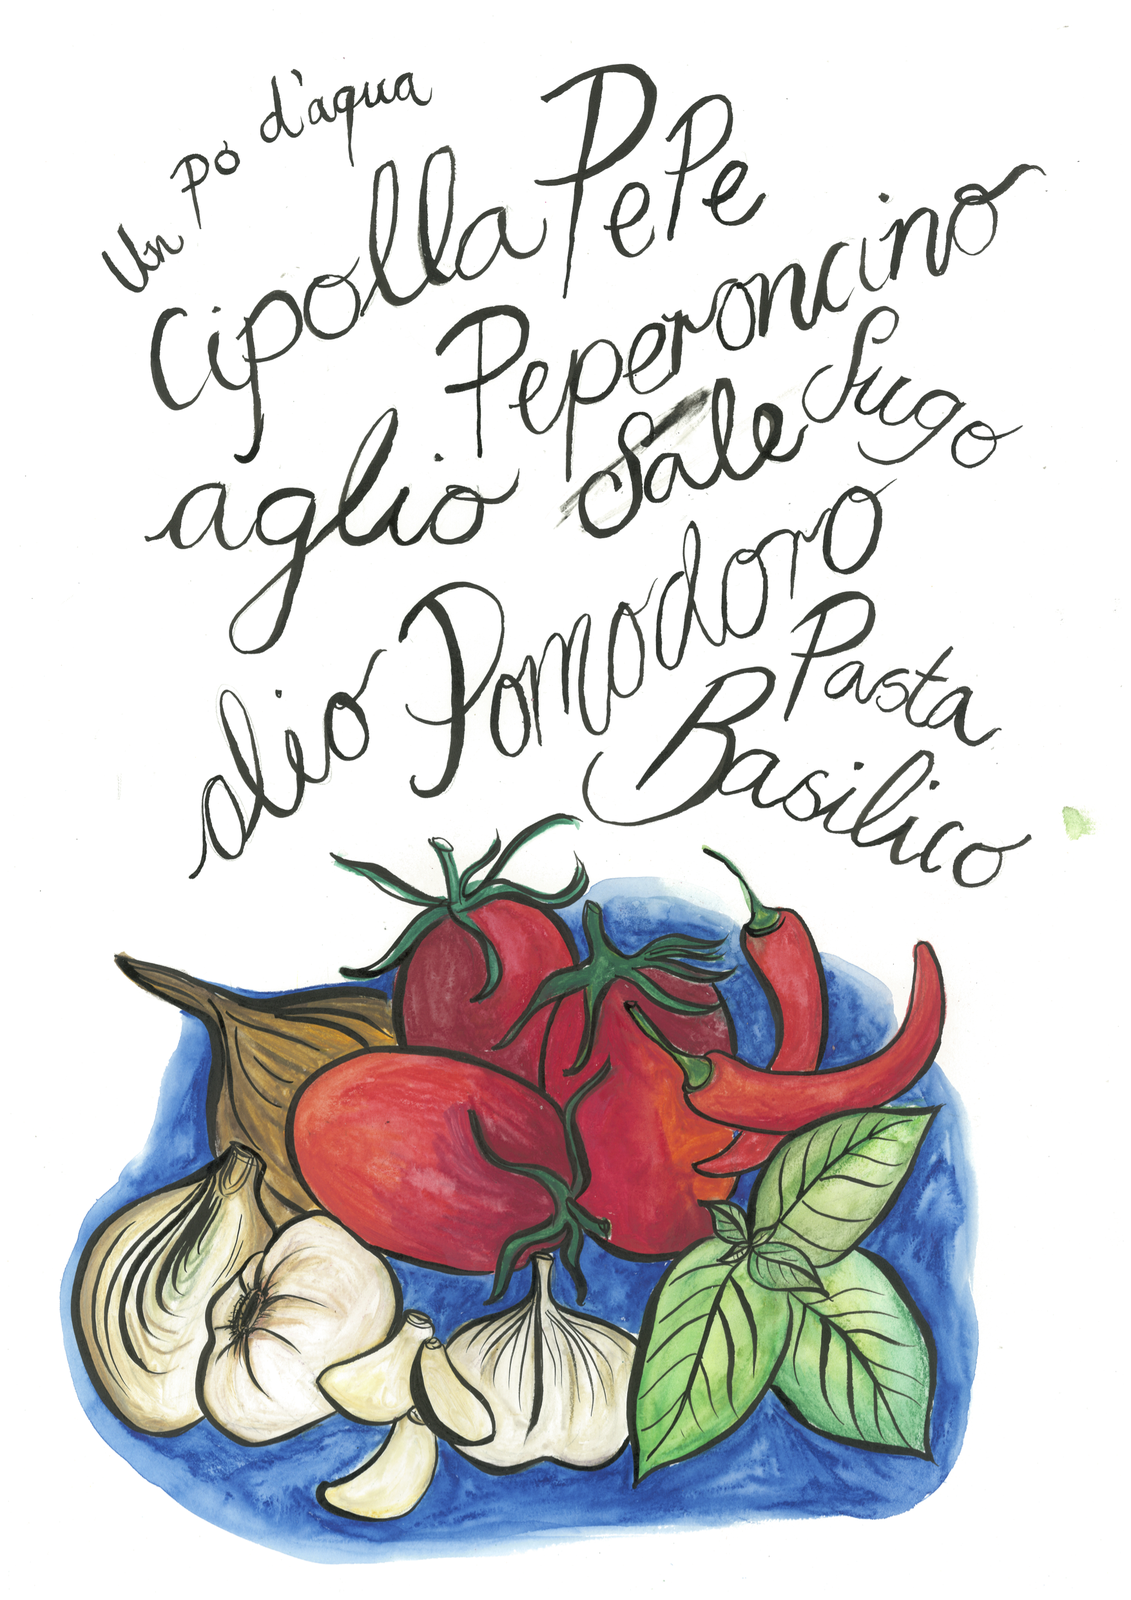 Un pó d'aqua
Cipolla PePe
Peperoncino
aglio Sale Sugo
olio Pomodoro
Pasta
Basilico